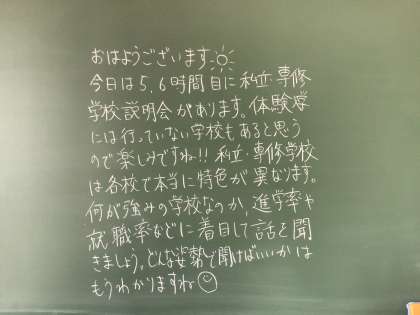 おはようございます
今日は5,6時間目に私立・専修
学校説明会があります。体験学
には行っていない学校もあると思う
ので楽しみですね!!私立・専修学校
は各校で本当に特色が異なります。
何が強みの学校なのか,進学率や
就職率などに着目して話を聞
きましょう。どんな姿勢で聞けばいいかは
もうわかりますね